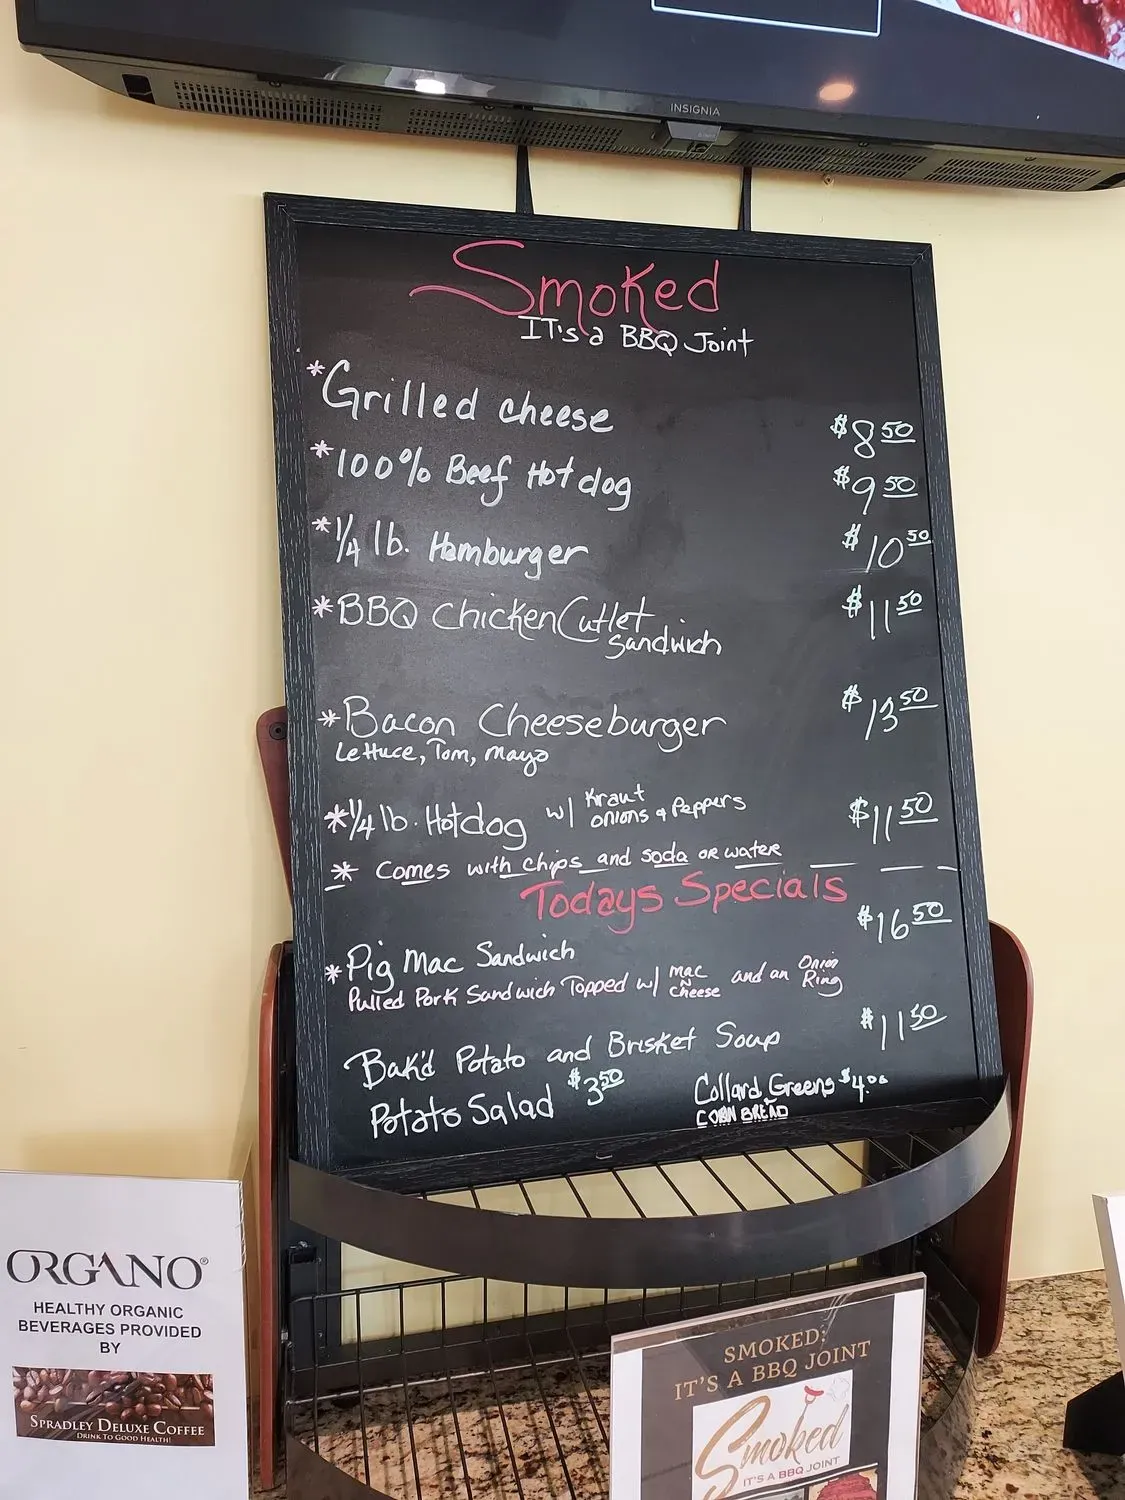 INSIGNIA
Smoked
IT's a BBQ Joint
*Grilled cheese $8.50
*100% Beef Hot dog $9.50
*1/4 lb. Hamburger $10.50
*BBQ Chicken Cutlet $11.50
Sandwich
*Bacon Cheeseburger $13.50
Lettuce, Tom, Mayo
*1/4 lb. Hotdog w/ Kraut $11.50
onions & Peppers
* Comes with chips and soda or water
Todays Specials
*Pig Mac Sandwich $16.50
Pulled Pork Sandwich Topped w/ mac n cheese and an Onion Ring
Bak'd Potato and Brisket Soup $11.50
Potato Salad $3.50
Collard Greens $4.00
CORN BREAD
ORGANO®
HEALTHY ORGANIC
BEVERAGES PROVIDED
BY
SPRADLEY DELUXE COFFEE
DRINK TO GOOD HEALTH!
SMOKED:
IT'S A BBQ JOINT
Smoked
IT'S A BBQ JOINT